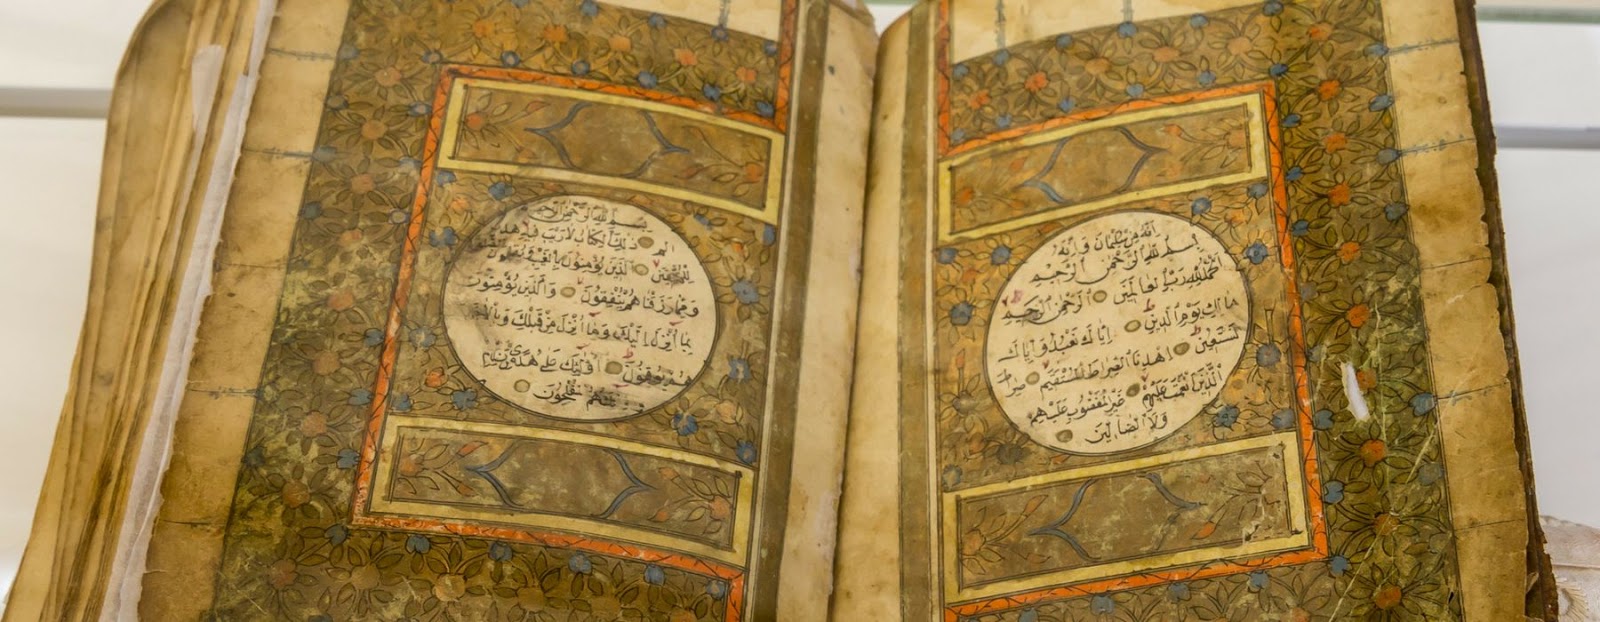 انه من سليمان وانه
بسم الله الرحمن الرحيم
الحمد لله رب العالمين الرحمن الرحيم
مالك يوم الدين اياك نعبد واياك
نستعين اهدنا الصراط المستقيم صراط
الذين انعمت عليهم غير المغضوب عليهم
ولا الضالين
بسم الله الرحمن الرحيم
الم ذلك الكتاب لا ريب فيه هدى
للمتقين الذين يؤمنون بالغيب ويقيمون الصلوة
ومما رزقناهم ينفقون والذين يؤمنون
بما أنزل اليك وما أنزل من قبلك وبالاخرة
هم يوقنون اولئك على هدى من
هم المفلحون